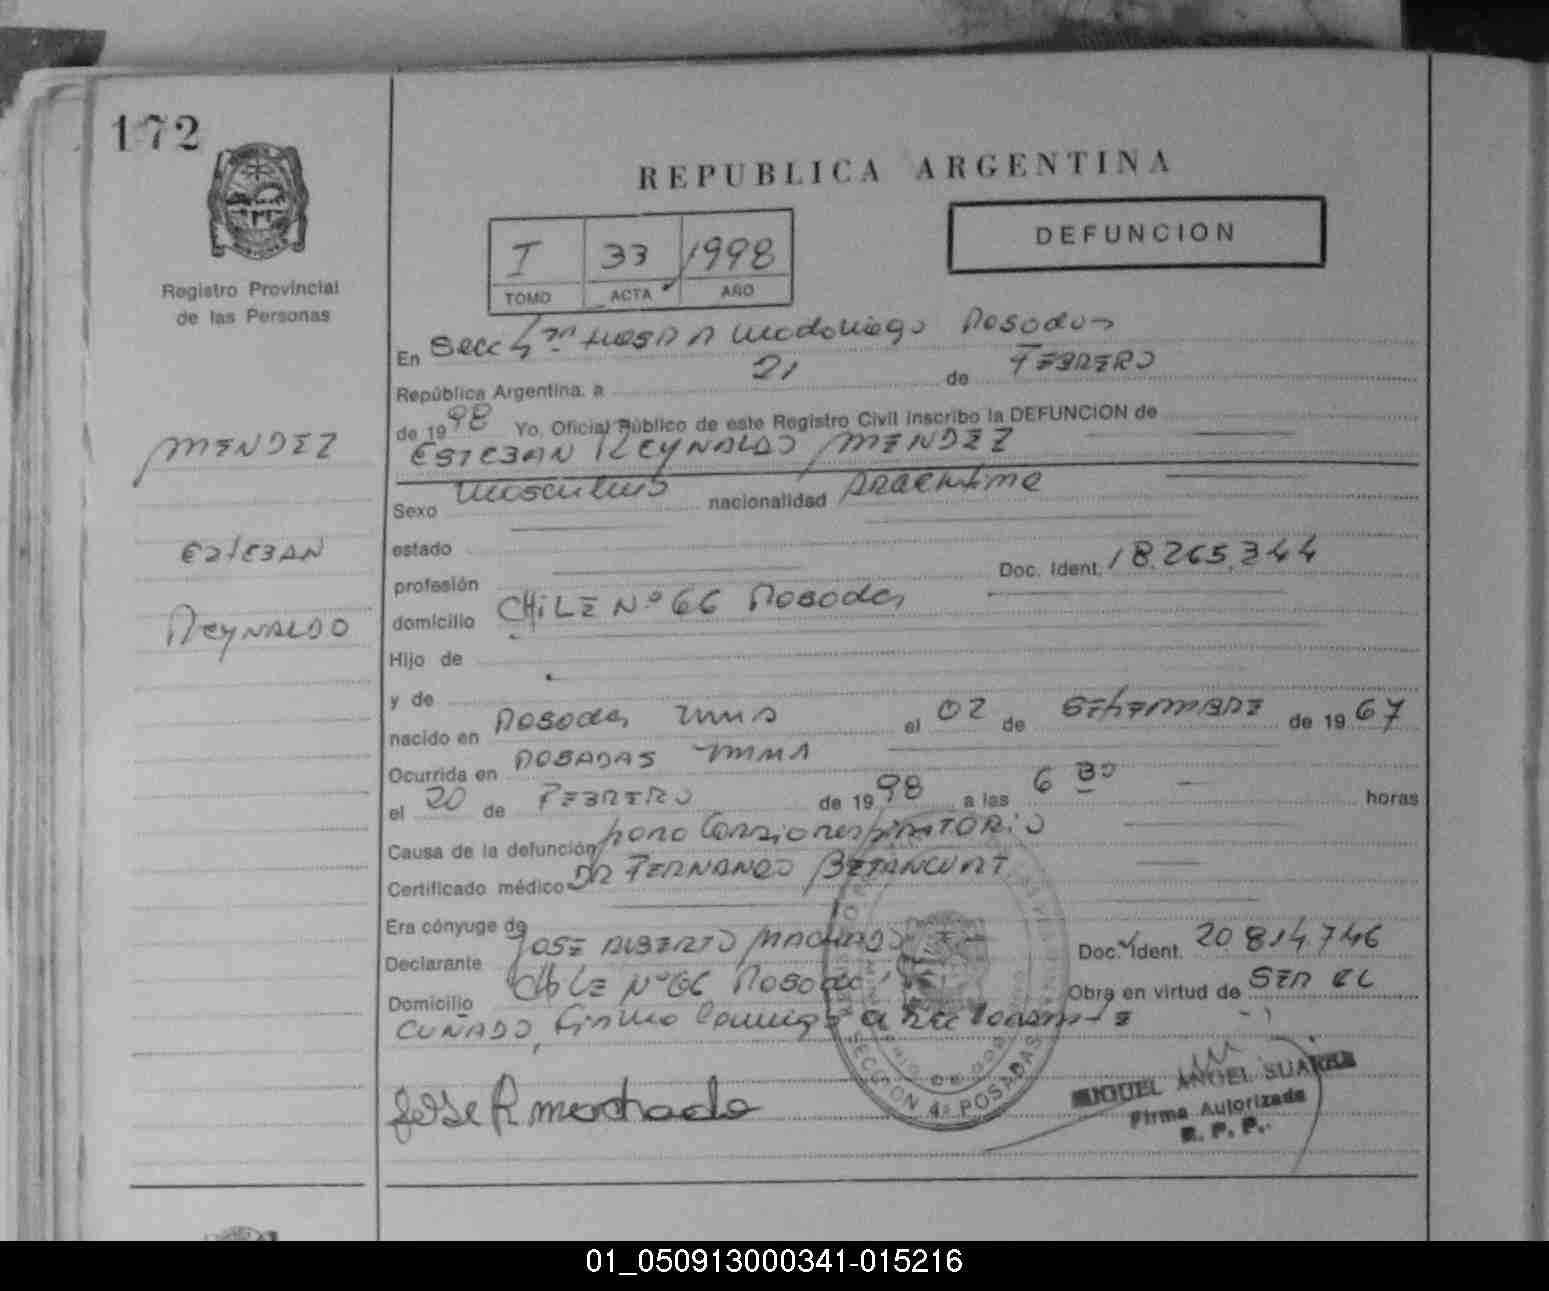 172
REPUBLICA ARGENTINA
DEFUNCION
I 33 1998
TOMO ACTA AÑO
Registro Provincial
de las Personas
En Secc 4ta Posadas
República Argentina, a 21 de FEBRERO
de 1998 Yo, Oficial Público de este Registro Civil inscribo la DEFUNCION de
ESTEBAN REYNALDO MENDEZ
MENDEZ
ESTEBAN
REYNALDO
Sexo Masculino nacionalidad Argentina
estado
profesión Doc. Ident. 18.265.344
domicilio CHILE Nº 66 Posadas
Hijo de
y de
nacido en Posadas el 02 de SETIEMBRE de 1967
Ocurrida en POSADAS
el 20 de FEBRERO de 1998 a las 6 30 horas
Causa de la defunción paro CardiorespiRATORiO
Certificado médico DR FERNANDO BETANCURT
Era cónyuge de
Declarante JOSE ALBERTO MACHADO Doc. Ident. 20 814.746
Domicilio CHILE Nº 66 Posadas Obra en virtud de SER EL
CUÑADO, Firma Conmigo el declarante
SECCION 4ª POSADAS
Jose A machado
MIGUEL ANGEL SUAREZ
Firma Autorizada
R. P. P.
01_050913000341-015216